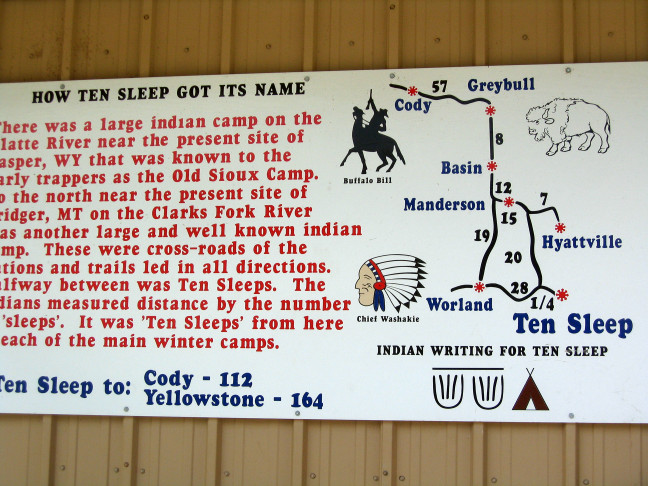 HOW TEN SLEEP GOT ITS NAME
here was a large indian camp on the
latte River near the present site of
asper, WY that was known to the
arly trappers as the Old Sioux Camp.
o the north near the present site of
ridger, MT on the Clarks Fork River
as another large and well known indian
mp. These were cross-roads of the
tions and trails led in all directions.
alfway between was Ten Sleeps. The
dians measured distance by the number
'sleeps'. It was 'Ten Sleeps' from here
each of the main winter camps.
Ten Sleep to: Cody - 112
Yellowstone - 164
Buffalo Bill
Chief Washakie
57
Greybull
Cody
8
Basin
12
Manderson
7
15
19
Hyattville
20
28
Worland
1/4
Ten Sleep
INDIAN WRITING FOR TEN SLEEP